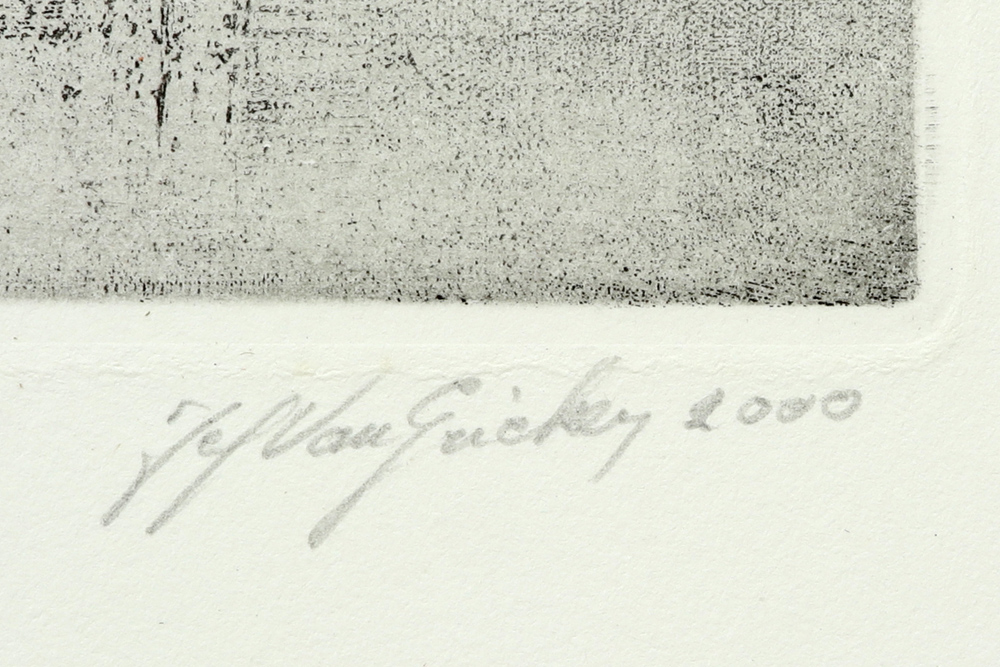 Jef Van Grieken 2000